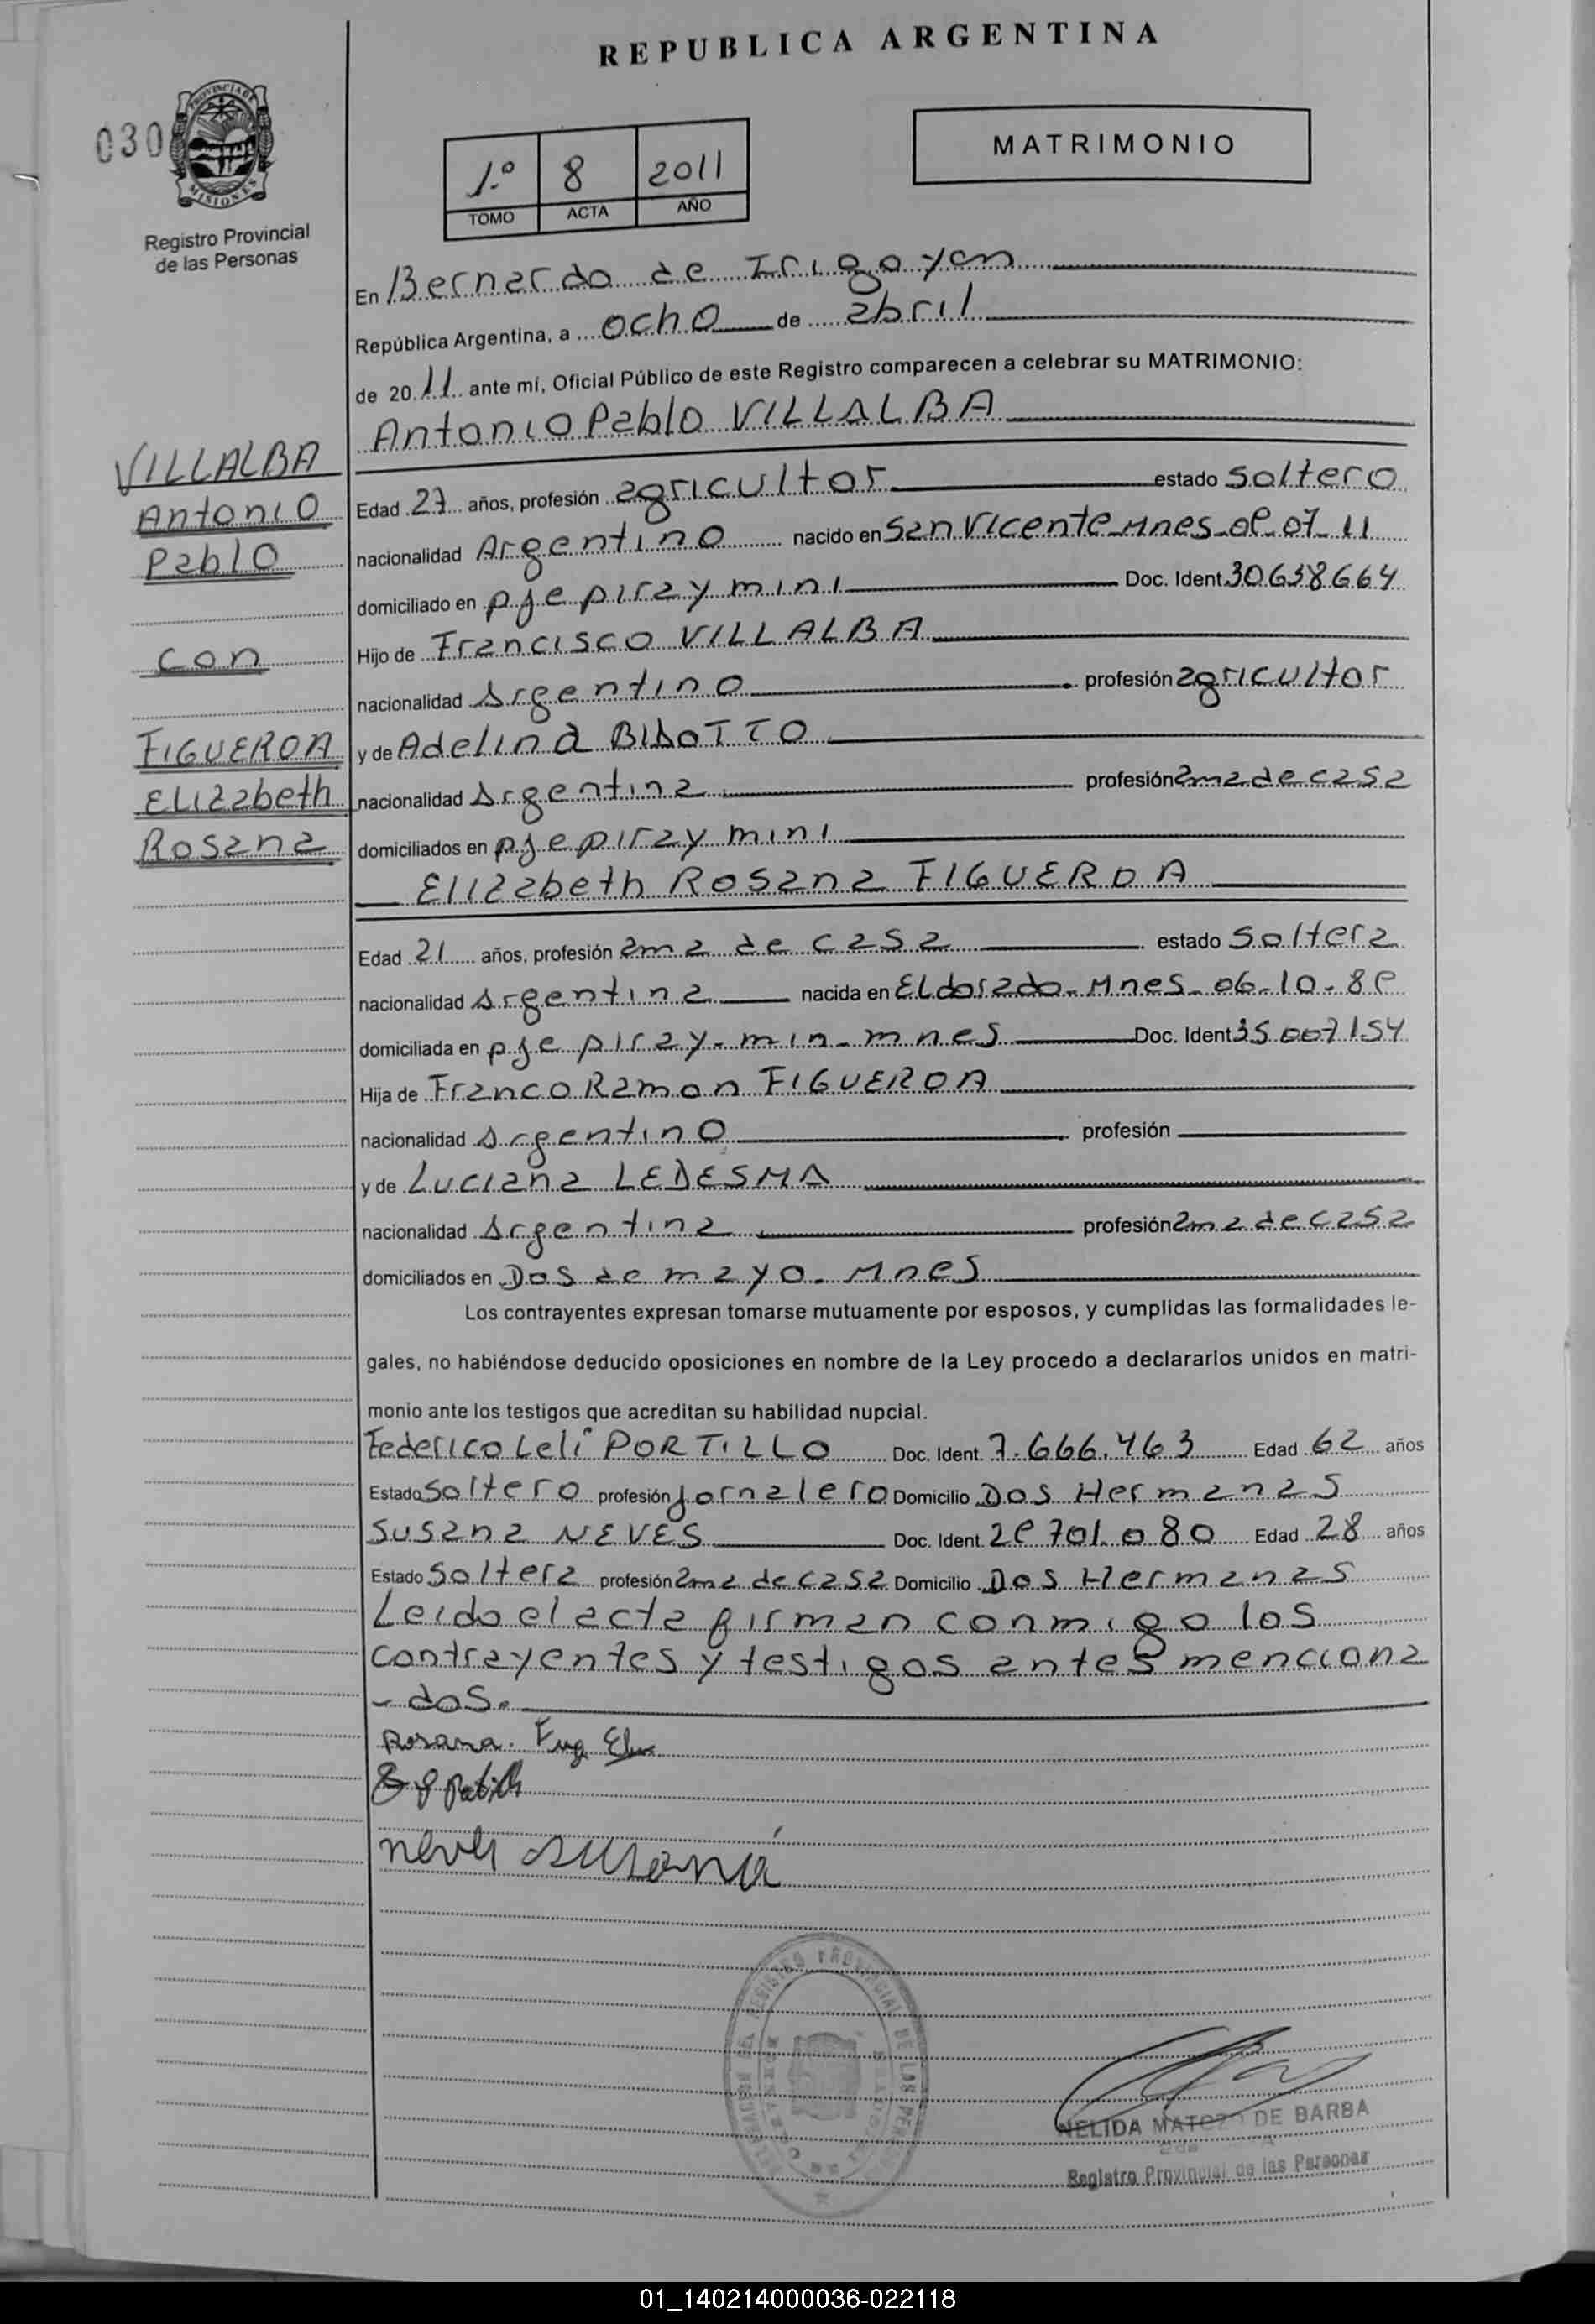 REPUBLICA ARGENTINA
030
PROVINCIA DE MISIONES
Registro Provincial
de las Personas
1.º 8 2011
TOMO ACTA AÑO
MATRIMONIO
En Bernardo de Irigoyen
República Argentina, a ocho de abril
de 2011 ante mí, Oficial Público de este Registro comparecen a celebrar su MATRIMONIO:
Antonio Pablo VILLALBA
VILLALBA
Antonio
Pablo
con
FIGUEROA
Elizabeth
Rosana
Edad 27 años, profesión agricultor estado soltero
nacionalidad Argentino nacido en San Vicente Mnes
domiciliado en pje piray mini Doc. Ident. 30638664
Hijo de Francisco VILLALBA
nacionalidad Argentino profesión agricultor
y de Adelina
nacionalidad Argentina profesión ama de casa
domiciliados en pje piray mini
Elizabeth Rosana FIGUEROA
Edad 21 años, profesión ama de casa estado soltera
nacionalidad Argentina nacida en Eldorado - Mnes - 06-10-89
domiciliada en pje piray - min - mnes Doc. Ident 35.007.154
Hija de Franco Ramon FIGUEROA
nacionalidad Argentino profesión
y de Luciana LEDESMA
nacionalidad Argentina profesión ama de casa
domiciliados en Dos de mayo - Mnes
Los contrayentes expresan tomarse mutuamente por esposos, y cumplidas las formalidades le-
gales, no habiéndose deducido oposiciones en nombre de la Ley procedo a declararlos unidos en matri-
monio ante los testigos que acreditan su habilidad nupcial.
Federico Leli PORTILLO Doc. Ident. 7.666.463 Edad 62 años
Estado soltero profesión jornalero Domicilio Dos Hermanas
Susana NEVES Doc. Ident. 29701.080 Edad 28 años
Estado soltera profesión ama de casa Domicilio Dos Hermanas
Leido el acta firman conmigo los
contrayentes y testigos antes menciona
- dos.
Rosana. Fig
neves susana
NELIDA MATOZO DE BARBA
Registro Provincial de las Personas
01_140214000036-022118